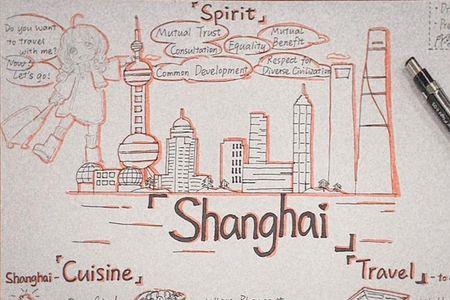 「Spirit」
Do you want
to travel
with me?
Now!
Let's go!
Mutual Trust
Mutual
Benefit
Consultation
Equality
Common Development
Respect for
Diverse Civilization
「Shanghai」
Shanghai-「Cuisine」
「Travel」- to